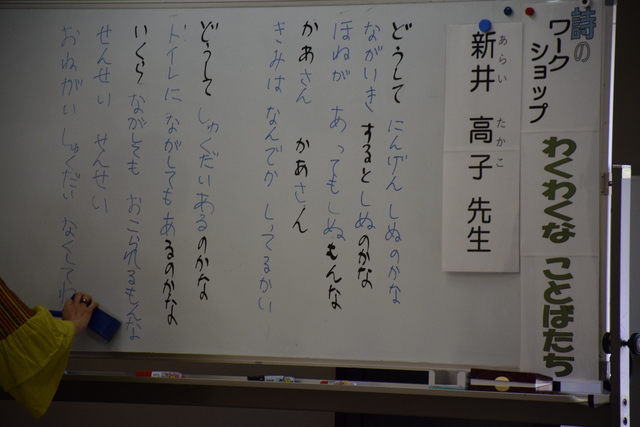 詩の
ワーク
ショップ
わくわくな ことばたち
新井 高子 先生
あらい たかこ
どうして にんげん しぬのかな
ながいき するとしぬのかな
ほねが あってもしぬもんな
かあさん かあさん
きみは なんでか しってるかい
どうして しゅくだいあるのかな
トイレに ながしてもあるのかな
いくら ながしても おこられるもんな
せんせい せんせい
おねがい しゅくだい なくしてね